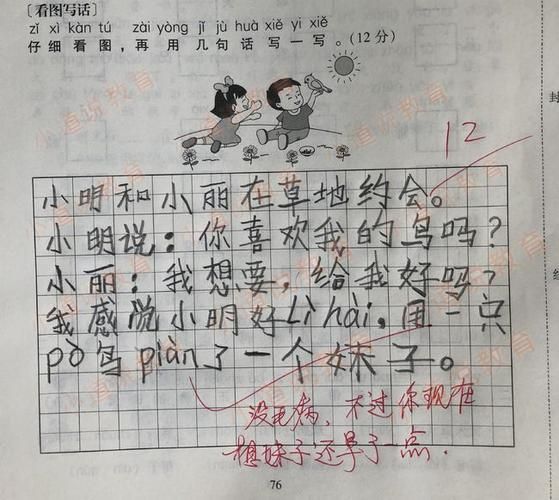 [看图写话]
zǐ xì kàn tú zài yòng jǐ jù huà xiě yi xiě
仔细看图,再用几句话写一写。(12分)
12
小明和小丽在草地约会。
小明说:你喜欢我的鸟吗?
小丽:我想要,给我好吗?
我感觉小明好Lì hài,用一只
pò鸟piàn了一个妹子。
没毛病,不过你现在
想妹子还早了一点.
76
小道说教育
封